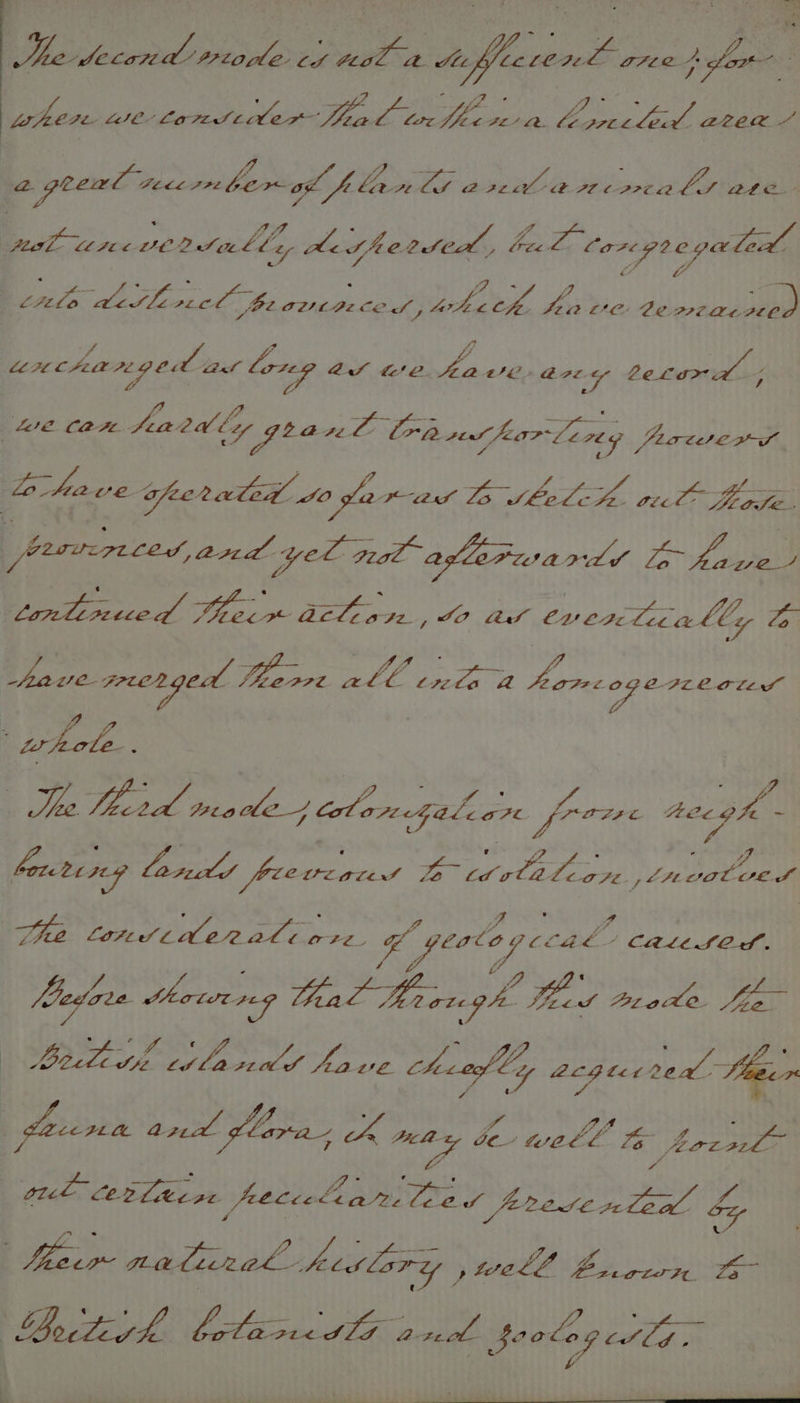 The second mode is not a sufficient one; for
when we consider that within a limited area
a great number of plants and animals are
not universally dispersed, but congregated
into distinct provinces, which have remained
unchanged as long as we have any record,
we can hardly grant transporting powers
to have operated so far as to sketch out those
provinces, and yet not afterwards to have
continued their action, so as eventually to
have merged them all into a homogeneous
whole.
The third mode, colonization from neigh-
bouring lands previous to isolation, involves
the consideration of geological causes.
Before showing that through this mode the
British islands have chiefly acquired their
fauna and flora, it may be well to point
out certain peculiarities presented by
their natural history, well known to
British botanists and zoologists.